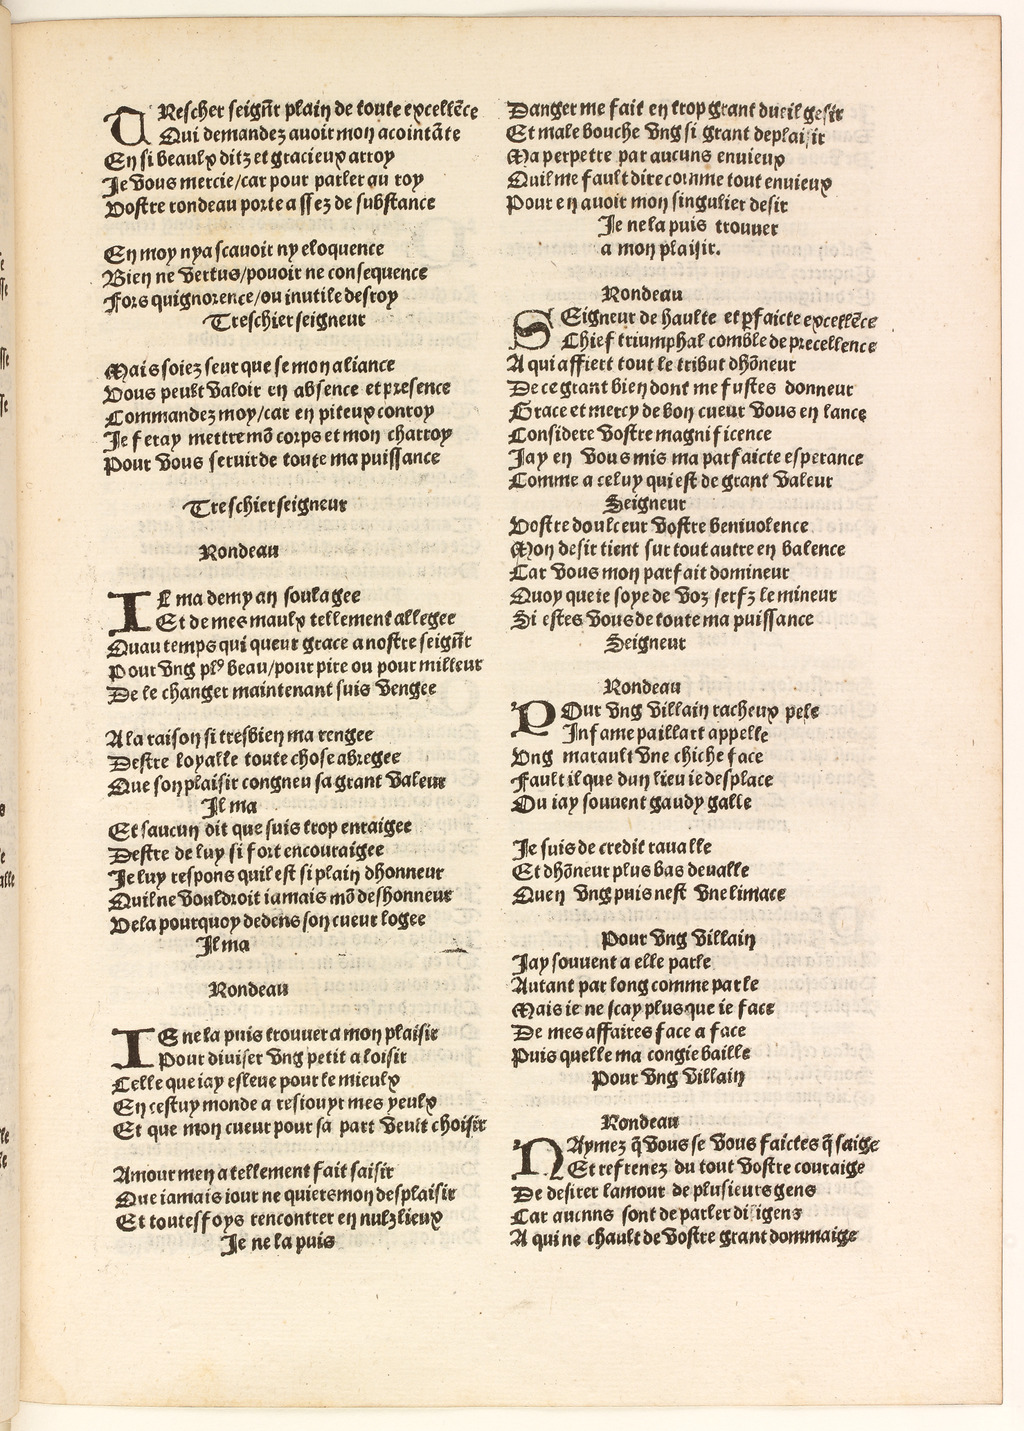 TRescher seign̄r plain de toute excellēce
Qui demandez auoir mon acointāte
En si beaulx ditz et gracieux arroy
Je vous mercie/car pour parler au roy
Vostre rondeau porte assez de substance
En moy nya scauoir ny eloquence
Bien ne vertus/pouoir ne consequence
Fors quignorence/ou inutile desroy
Treschier seigneur
Mais soiez seur que se mon aliance
Vous peult valoir en absence et presence
Commandez moy/car en piteux conroy
Je feray mettre mō corps et mon charroy
Pour vous seruir de toute ma puissance
Treschier seigneur
Rondeau
IL ma demy an soulagee
Et de mes maulx tellement allegee
Quau temps qui queur grace a nostre seign̄r
Pour vng plꝰ beau/pour pire ou pour milleur
De le changer maintenant suis vengee
A la raison si tresbien ma rengee
Destre loyalle toute chose abregee
Que son plaisir congneu sa grant valeur
Il ma
Et saucun dit que suis trop enraigee
Destre de luy si fort encouraigee
Je luy respons quil est si plain dhonneur
Quil ne vouldroit iamais mō deshonneur
Vela pourquoy dedens son cueur logee
Il ma
Rondeau
IE ne la puis trouuer a mon plaisir
Pour diuiser vng petit a loisir
Celle que iay esleue pour le mieulx
En cestuy monde a resiouyr mes yeulx
Et que mon cueur pour sa part veult choisir
Amour men a tellement fait saisir
Que iamais iour ne quiers mon desplaisir
Et toutesfoys rencontrer en nulz lieux
Je ne la puis
Danger me fait en trop grant dueil gesir
Et male bouche vng si grant deplaisir
Ma perpetre par aucuns enuieux
Quil me fault dire comme tout enuieux
Pour en auoir mon singulier desir
Je ne la puis trouuer
a mon plaisir.
Rondeau
SEigneur de haulte et ꝑfaicte excellēce
Chief triumphal comble de precellence
A qui affiert tout le tribut dhōneur
De ce grant bien dont me fustes donneur
Grace et mercy de bon cueur vous en lance
Considere vostre magnificence
Jay en vous mis ma parfaicte esperance
Comme a celuy qui est de grant valeur
Seigneur
Vostre doulceur vostre beniuolence
Mon desir tient sur tout autre en balence
Car vous mon parfait domineur
Quoy que ie soye de voz serfz le mineur
Si estes vous de toute ma puissance
Seigneur
Rondeau
POur vng villain racheux pele
Infame paillart appelle
Vng marault vne chiche face
Fault il que dun lieu ie desplace
Ou iay souuent gaudy galle
Je suis de credit raualle
Et dhōneur plus bas deualle
Quen vng puis nest vne limace
Pour vng villain
Jay souuent a elle parle
Autant par long comme par le
Mais ie ne scay plus que ie face
De mes affaires face a face
Puis quelle ma congie baille
Pour vng villain
Rondeau
NAymez q̄ vous se vous faictes q̄ saige
Et refrenez du tout vostre couraige
De desirer lamour de plusieurs gens
Car aucnns sont de parler diligens
A qui ne chault de vostre grant dommaige